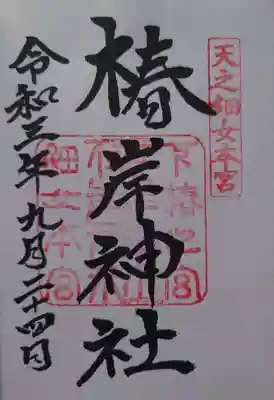 天之細女本宮
椿岸神社
令和三年九月二十四日